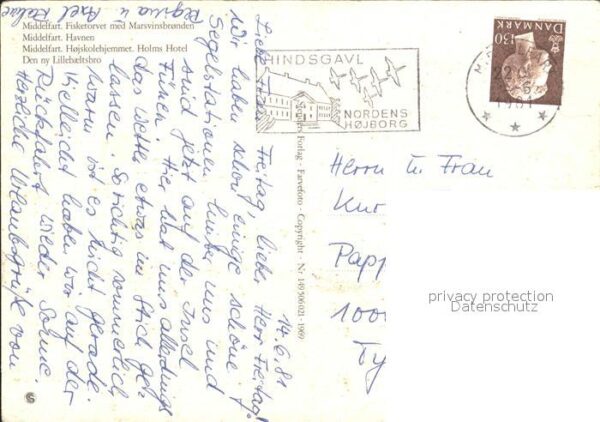 Middelfart. Fisketorvet med Marsvinsbrønden
Middelfart. Havnen
Middelfart. Højskolehjemmet. Holms Hotel
Den ny Lillebæltsbro
HINDSGAVL
NORDENS
HØJBORG
130
DANMARK
1981
14.6.81
Liebe Frau Freitag, lieber Herr Freitag!
Wir haben schon einige schöne
Segelstationen hinter uns und
sind jetzt auf der Insel
Fünen. Hier hat uns allerdings
das Wetter etwas im Stich ge-
lassen. So richtig sommerlich
warm ist es nicht gerade.
Vielleicht haben wir auf der
Rückfahrt wieder Sonne.
Herzliche Urlaubsgrüße von
Regina u. Axel
Forlag - Farvefoto - Copyright - Nr 149 506 021 - 1969
Herrn u. Frau
Kur
Papp
100
privacy protection
Datenschutz